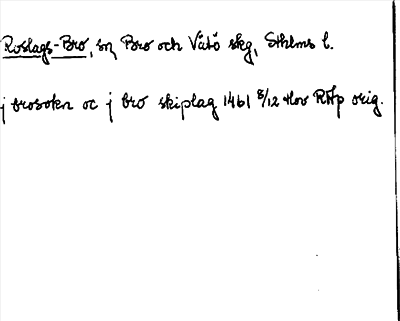 Roslags-Bro, sn, Bro och Vätö skg, Sthlms l.
j brosokn oc j bro skiplag 1461 8/12 Hov RAp orig.